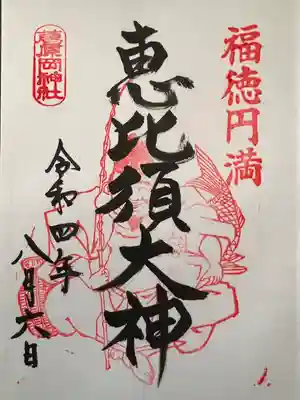 福徳円満
恵比須大神
葛原岡神社
令和四年
八月六日